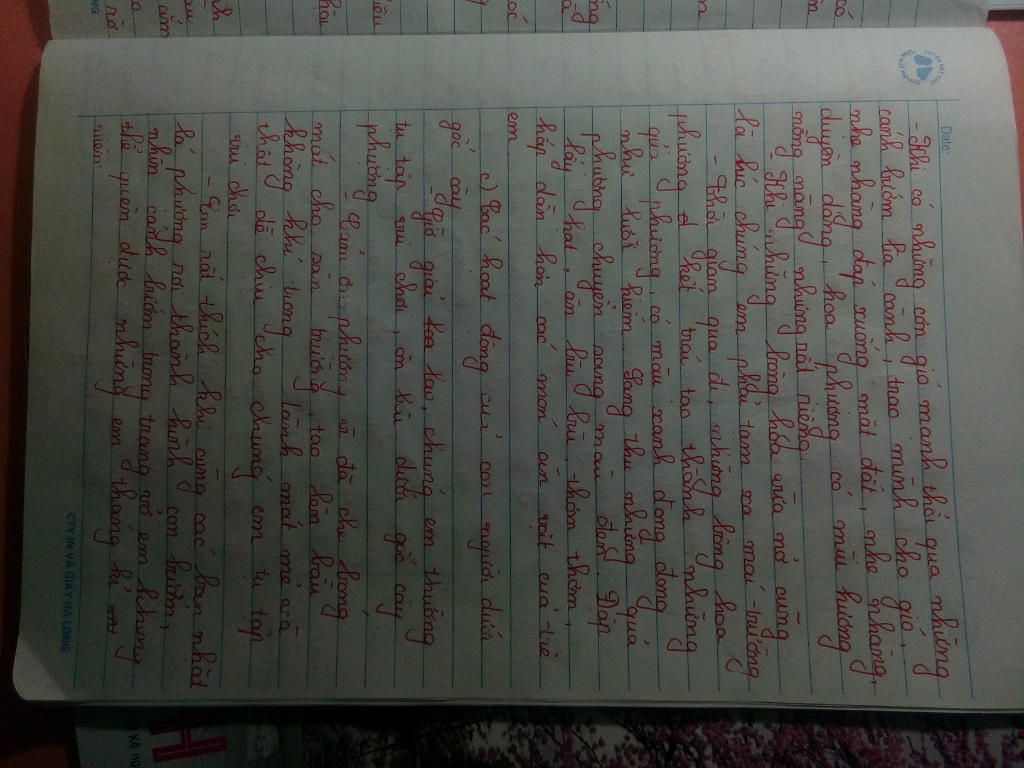 Date:
- Khi có những cơn gió mạnh thổi qua những
cánh bướm lìa cành, trao mình cho gió,
nhẹ nhàng đáp xuống mặt đất, nhẹ nhàng,
duyên dáng, hoa phượng có mùi hương
nồng nàng nhưng rất riêng.
- Khi những bông hoa vừa nở cũng
là lúc chúng em phải tạm xa mái trường
- Thời gian qua đi, những bông hoa
phượng đ kết trái tạo thành những
quả phượng, có màu xanh đong đong
như lưỡi liềm. Sang thu những quả
phượng chuyển sang màu đen. Đập
lấy hạt, ăn bùi bùi, thơm thơm,
hấp dẫn hơn các món ăn vặt của trẻ
em
c) Các hoạt động của con người dưới
gốc cây
- Giờ giải lao, chúng em thường
tụ tập vui chơi, ôn bài dưới gốc cây
phượng
- Cảm ơn phượng vĩ đã che bóng
mát cho sân trường, tạo lên bầu
không khí trong lành mát mẻ và
thật dễ chịu cho chúng em tụ tập
vui chơi
- Em rất thích khi cùng các bạn nhặt
lá phượng rơi thành hình con bướm,
nhìn cánh bướm trong trang vở em không
thể quên được những em tháng kỉ
niệm
CTY IN VÀ GIẤY HẠ LONG
H